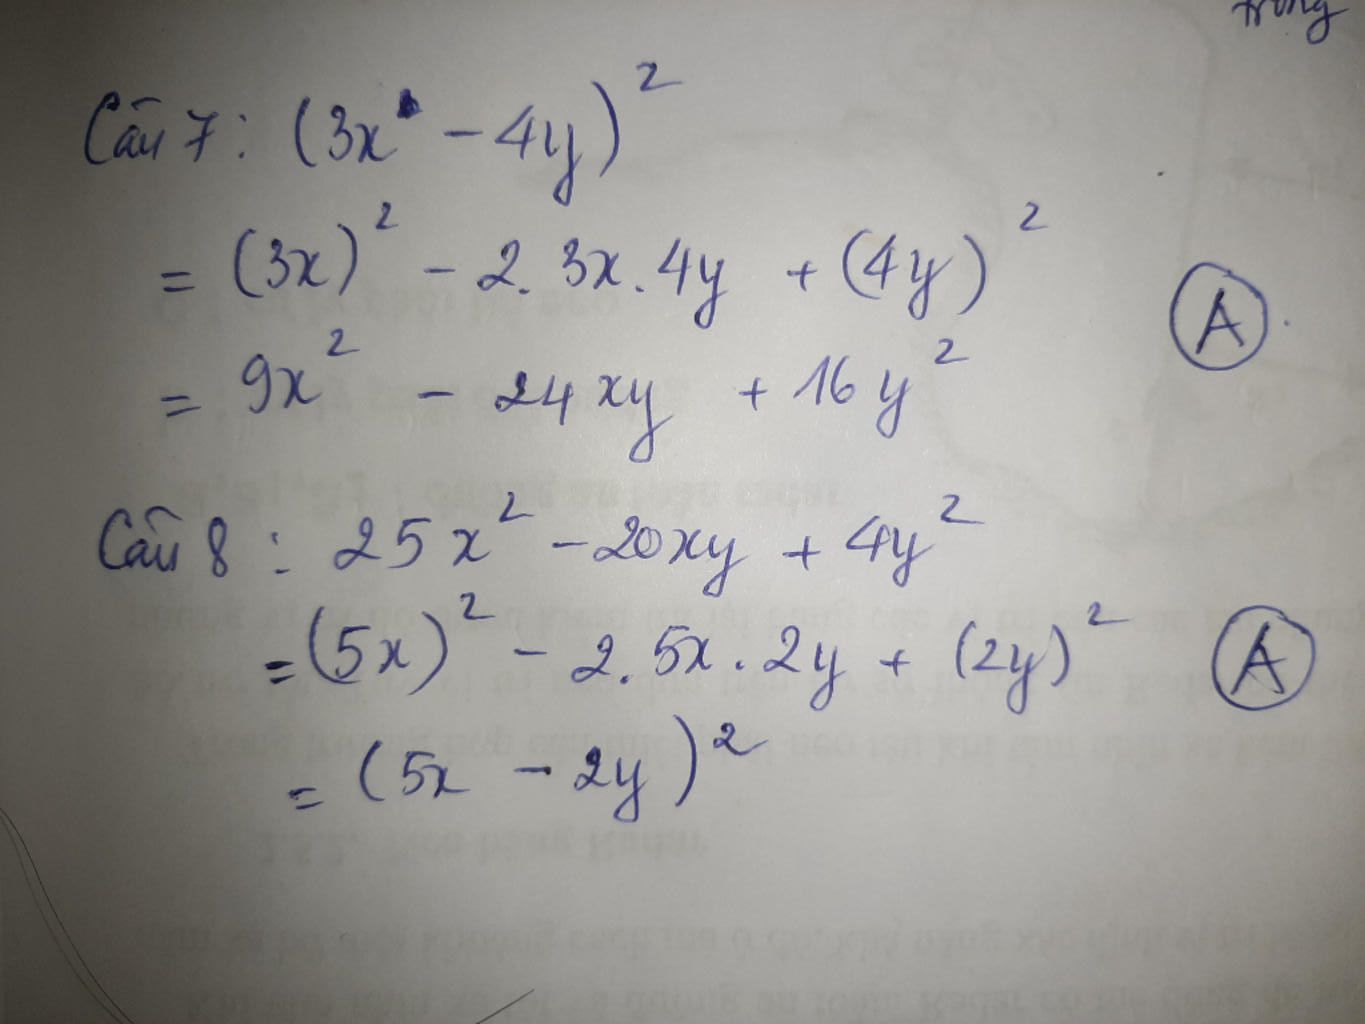 trong
Câu 7: (3x - 4y)²
= (3x)² - 2. 3x. 4y + (4y)²
A
= 9x² - 24xy + 16y²
Câu 8: 25x² - 20xy + 4y²
= (5x)² - 2. 5x. 2y + (2y)²
A
= (5x - 2y)²